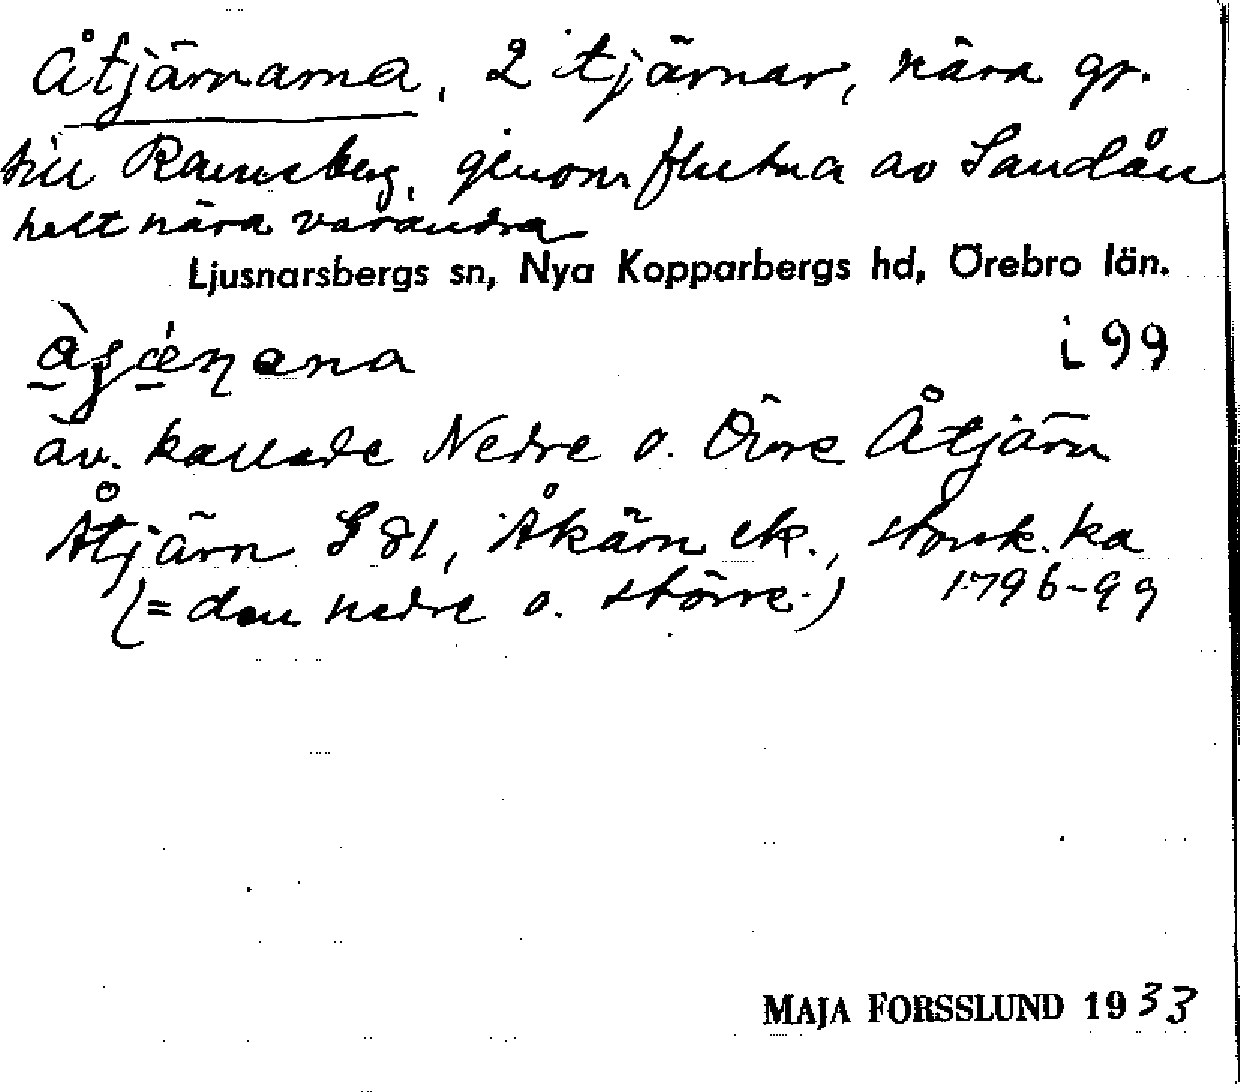 Åtjärnarna, 2 tjärnar, nära gr.
till Ramsberg, genomflutna av Sandån
helt nära varandra
Ljusnarsbergs sn, Nya Kopparbergs hd, Örebro län.
i 99
äv. kallade Nedre o. Övre Åtjärn
Åtjärn G 81, Åkärn ek., storsk. ka
(= den nedre o. större.) 1796-99
MAJA FORSSLUND 1933